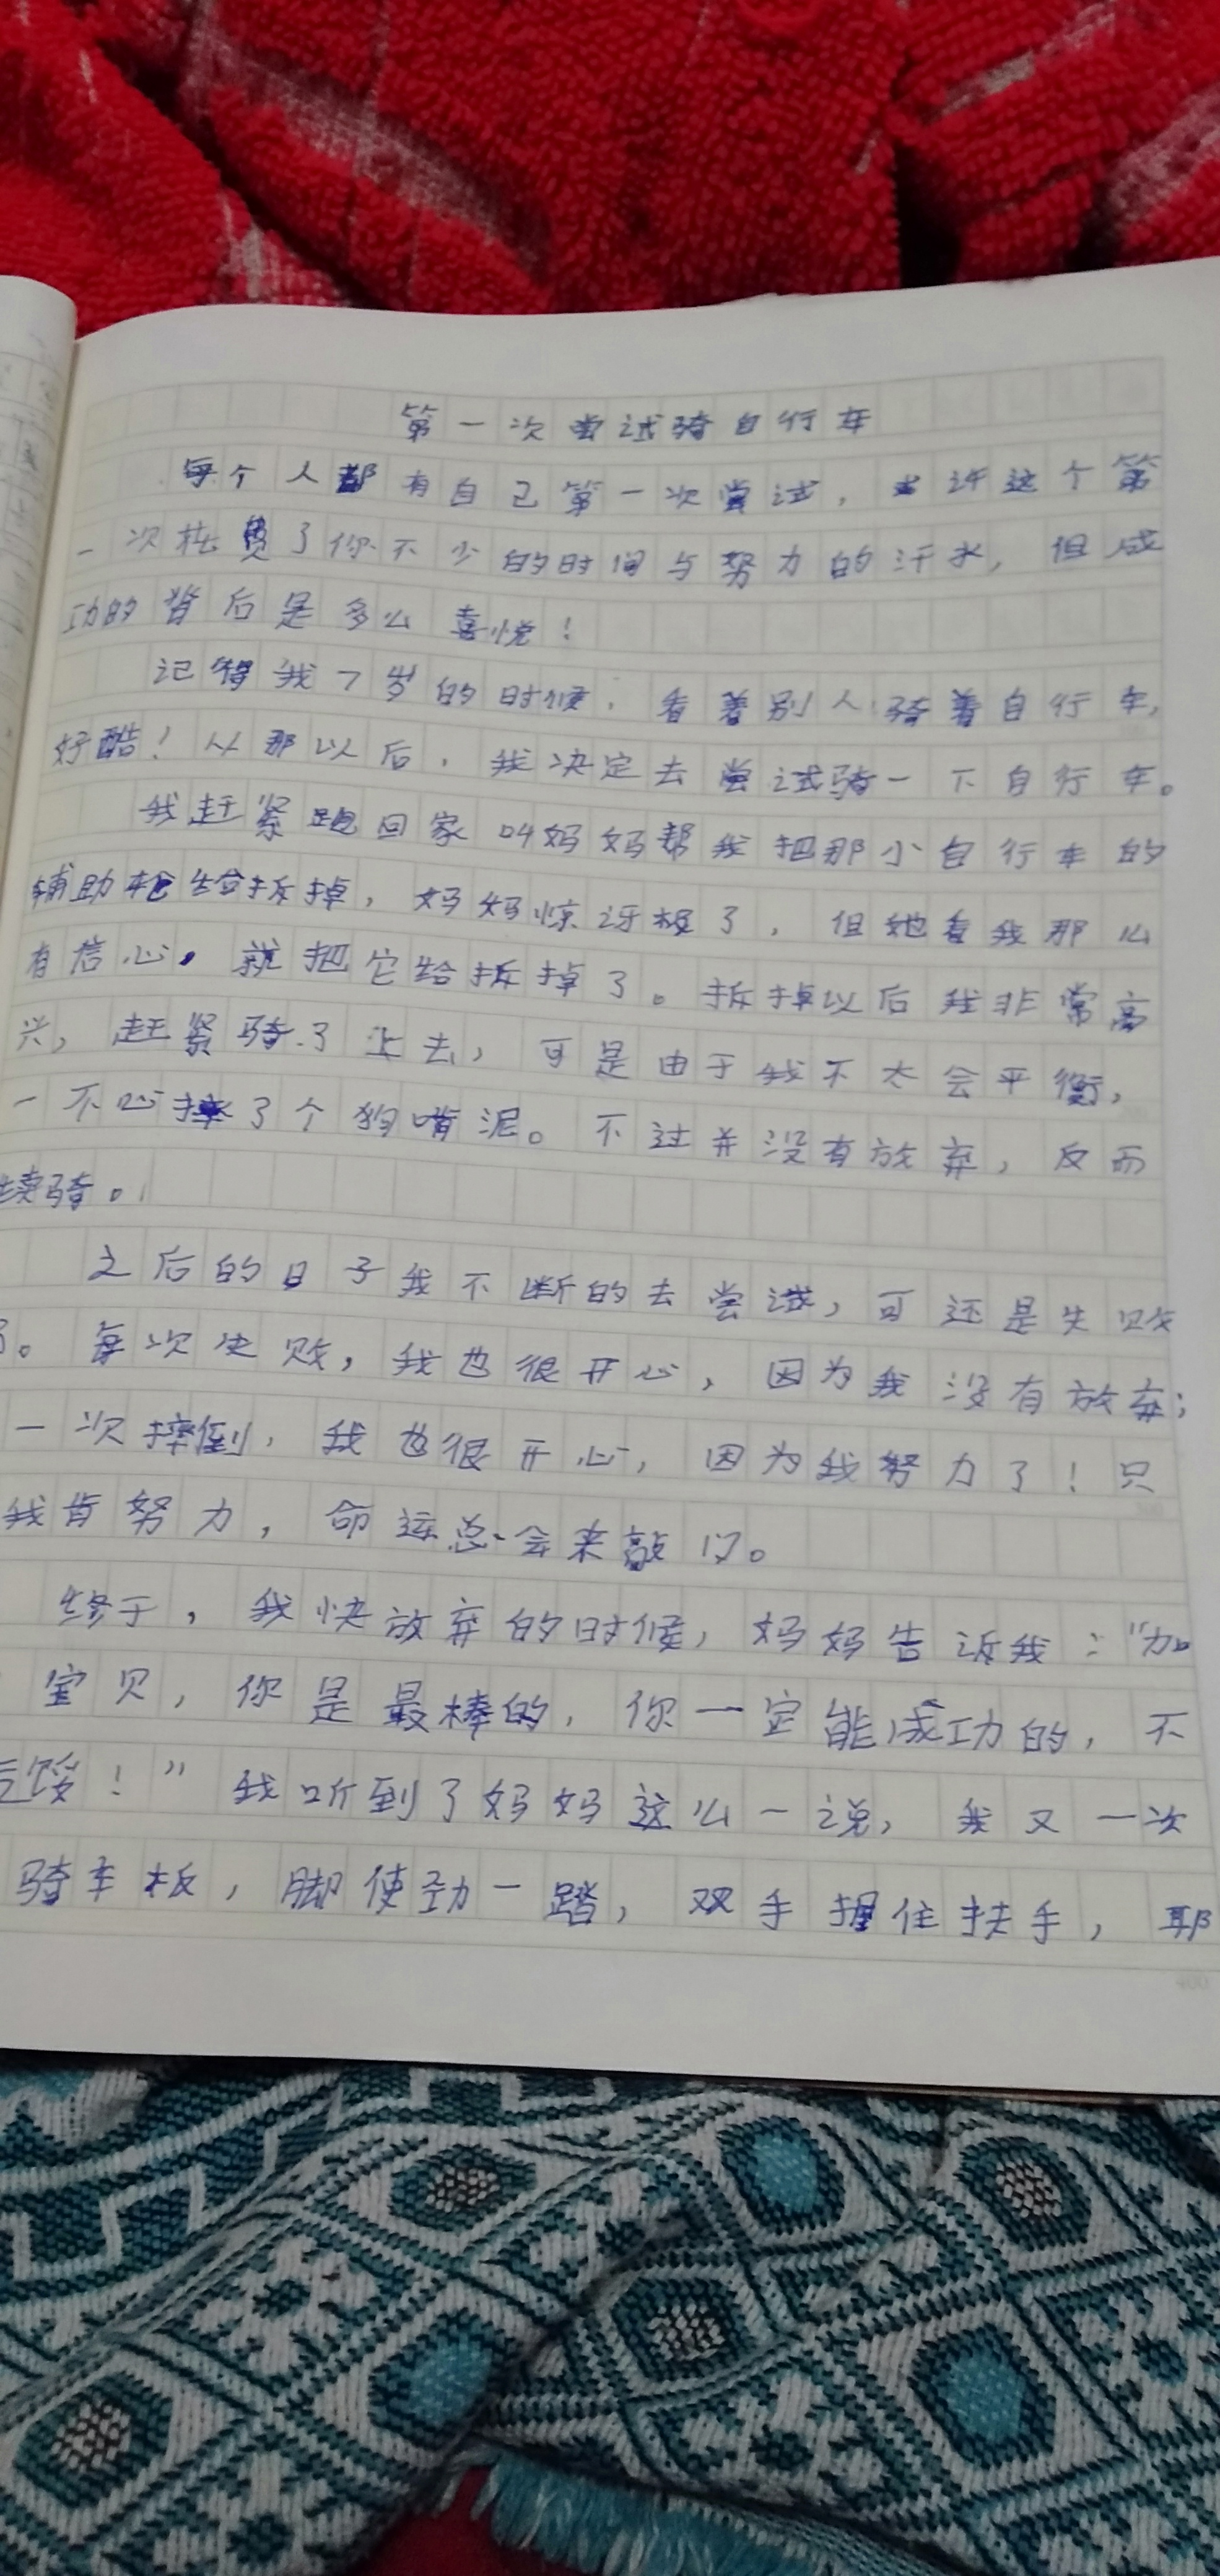 第一次尝试骑自行车
每个人都有自己第一次尝试，也许这个第
一次枉费了你不少的时间与努力的汗水，但成
功的背后是多么喜悦！
记得我7岁的时候，看着别人骑着自行车，
好酷！从那以后，我决定去尝试骑一下自行车。
我赶紧跑回家叫妈妈帮我把那小自行车的
辅助轮给拆掉，妈妈惊讶极了，但她看我那么
有信心，就把它给拆掉了。拆掉以后我非常高
兴，赶紧骑了上去，可是由于我不太会平衡，
一不心摔了个狗嘴泥。不过并没有放弃，反而
续骑。
之后的日子我不断的去尝试，可还是失败
了。每次失败，我也很开心，因为我没有放弃；
一次摔倒，我也很开心，因为我努力了！只
我肯努力，命运总会来敲门。
终于，我快放弃的时候，妈妈告诉我："加
宝贝，你是最棒的，你一定能成功的，不
气馁！"我听到了妈妈这么一说，我又一次
骑车板，脚使劲一踏，双手握住扶手，耶
400